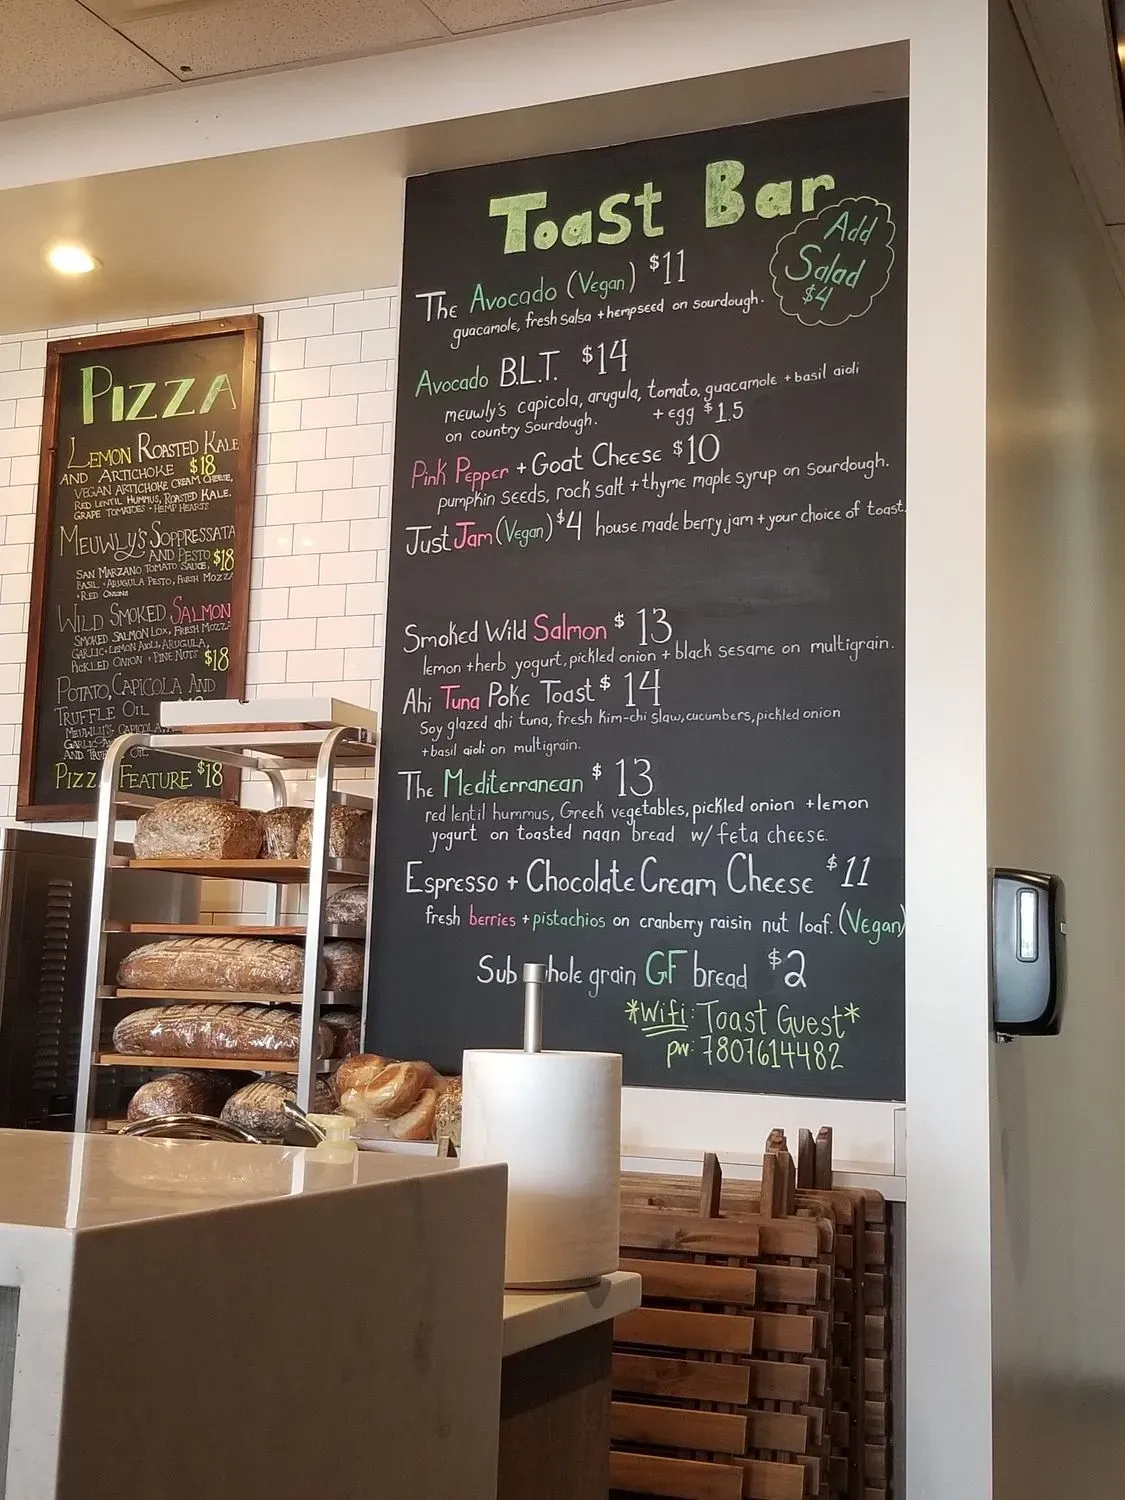 PIZZA
LEMON ROASTED KALE
AND ARTICHOKE $18
VEGAN ARTICHOKE CREAM CHEESE,
RED LENTIL HUMMUS, ROASTED KALE.
GRAPE TOMATOES + HEMP HEARTS
MEUWLY'S SOPPRESSATA
AND PESTO $18
SAN MARZANO TOMATO SAUCE,
BASIL + ARUGULA PESTO, FRESH MOZZA
+ RED ONIONS
WILD SMOKED SALMON
SMOKED SALMON LOX, FRESH MOZZ
GARLIC + LEMON AIOLI, ARUGULA,
PICKLED ONION + PINE NUTS $18
POTATO, CAPICOLA AND
TRUFFLE OIL
MEUWLY'S CAPICOLA,
GARLIC
AND TRUF OIL
PIZZ FEATURE $18
Toast Bar
Add
Salad
$4
The Avocado (Vegan) $11
guacamole, fresh salsa + hempseed on sourdough.
Avocado B.L.T. $14
meuwly's capicola, arugula, tomato, guacamole + basil aioli
on country sourdough. + egg $1.5
Pink Pepper + Goat Cheese $10
pumpkin seeds, rock salt + thyme maple syrup on sourdough.
Just Jam (Vegan) $4 house made berry jam + your choice of toast.
Smoked Wild Salmon $13
lemon + herb yogurt, pickled onion + black sesame on multigrain.
Ahi Tuna Poke Toast $14
Soy glazed ahi tuna, fresh kim-chi slaw, cucumbers, pickled onion
+ basil aioli on multigrain.
The Mediterranean $13
red lentil hummus, Greek vegetables, pickled onion + lemon
yogurt on toasted naan bread w/ feta cheese.
Espresso + Chocolate Cream Cheese $11
fresh berries + pistachios on cranberry raisin nut loaf. (Vegan)
Sub hole grain GF bread $2
*Wifi: Toast Guest*
pw: 7807614482